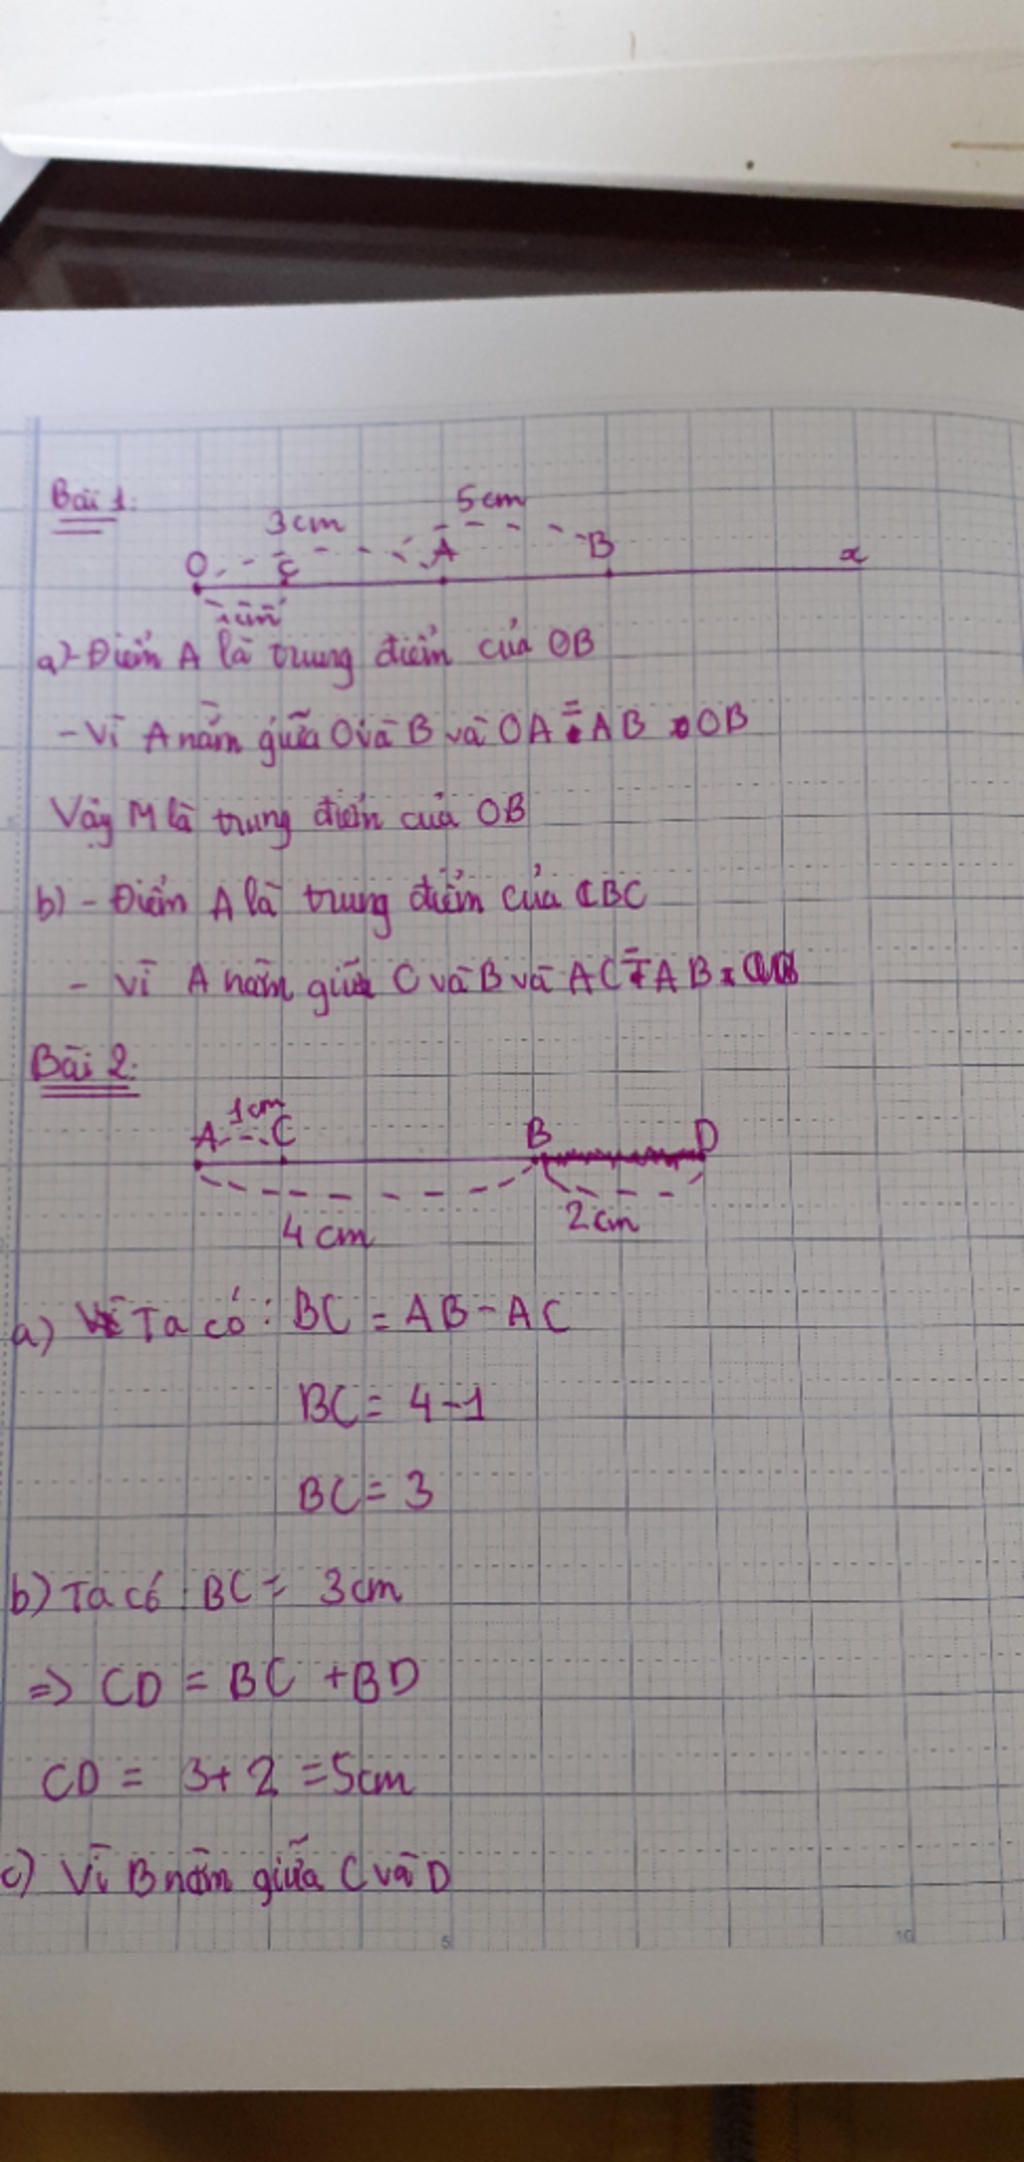 Bài 1:
3cm 5cm
O C A B x
1cm
a) - Điểm A là trung điểm của OB
- Vì A nằm giữa O và B và OA = AB OB
Vậy M là trung điểm của OB
b) - Điểm A là trung điểm của CBC
- Vì A nằm giữa C và B và AC = AB
Bài 2:
1cm
A C B D
4cm 2cm
a) Ta có: BC = AB - AC
BC = 4-1
BC = 3
b) Ta có: BC = 3cm
=> CD = BC + BD
CD = 3+2 = 5cm
c) Vì B nằm giữa C và D
5 10